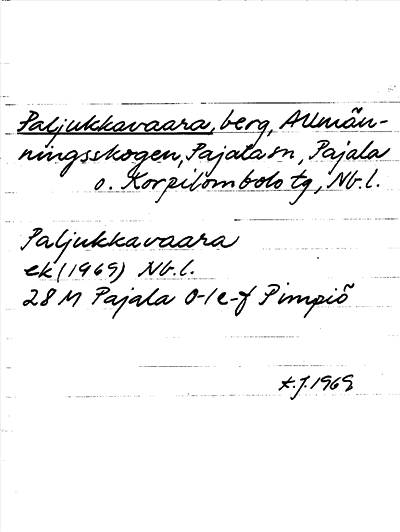 Paljukkavaara, berg, Allmän-
ningsskogen, Pajala sn, Pajala
o. Korpilombolo tg, Nb.l.
Paljukkavaara
ek (1969) Nb.l.
28 M Pajala 0-1 e-f Pimpiö
1969